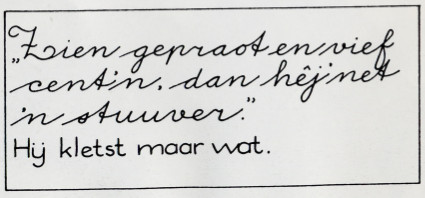 „Zien gepraot en vief
centin, dan hêj 'net
'n stuuver.”
Hij kletst maar wat.